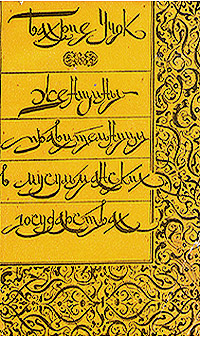 Бахрие Учок
Женщины-
правительницы
в мусульманских
государствах